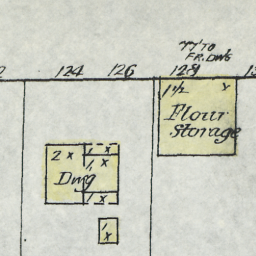 77' TO
FR. DWG
124 126 128
1½ x
Flour
Storage
2 x x
1 x
Dwg
1 x
1
x